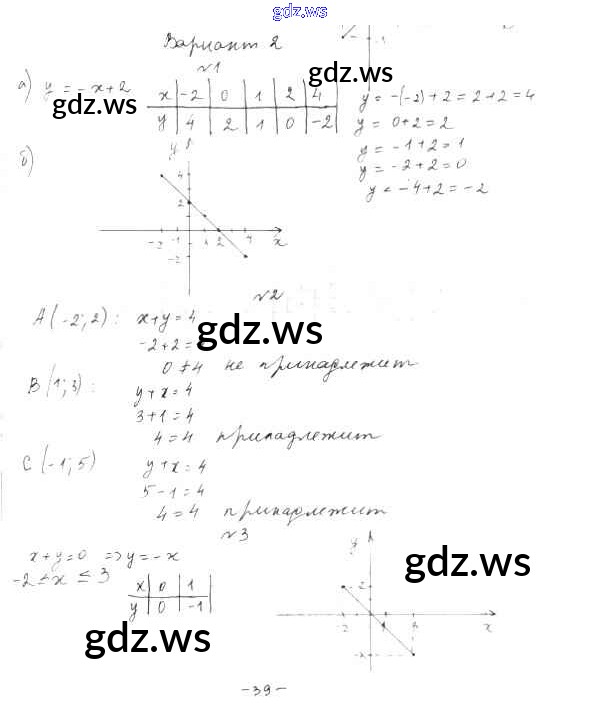 gdz.ws
Вариант 2
№1
gdz.ws
а) y = -x+2
x | -2 | 0 | 1 | 2 | 4
y | 4 | 2 | 1 | 0 | -2
gdz.ws
y = -(-2)+2 = 2+2 = 4
y = 0+2 = 2
y = -1+2 = 1
y = -2+2 = 0
y = -4+2 = -2
б)
y
4
2
-2 -1 1 2 4 x
-2
№2
A(-2; 2): x+y = 4
-2+2 =
gdz.ws
0 ≠ 4 не принадлежит
B(1; 3): y+x = 4
3+1 = 4
4 = 4 принадлежит
C(-1; 5) y+x = 4
5-1 = 4
4 = 4 принадлежит
№3
x+y=0 => y=-x
-2 ≤ x ≤ 3
x | 0 | 1
y | 0 | -1
gdz.ws
gdz.ws
y
2
-2 x
-39-